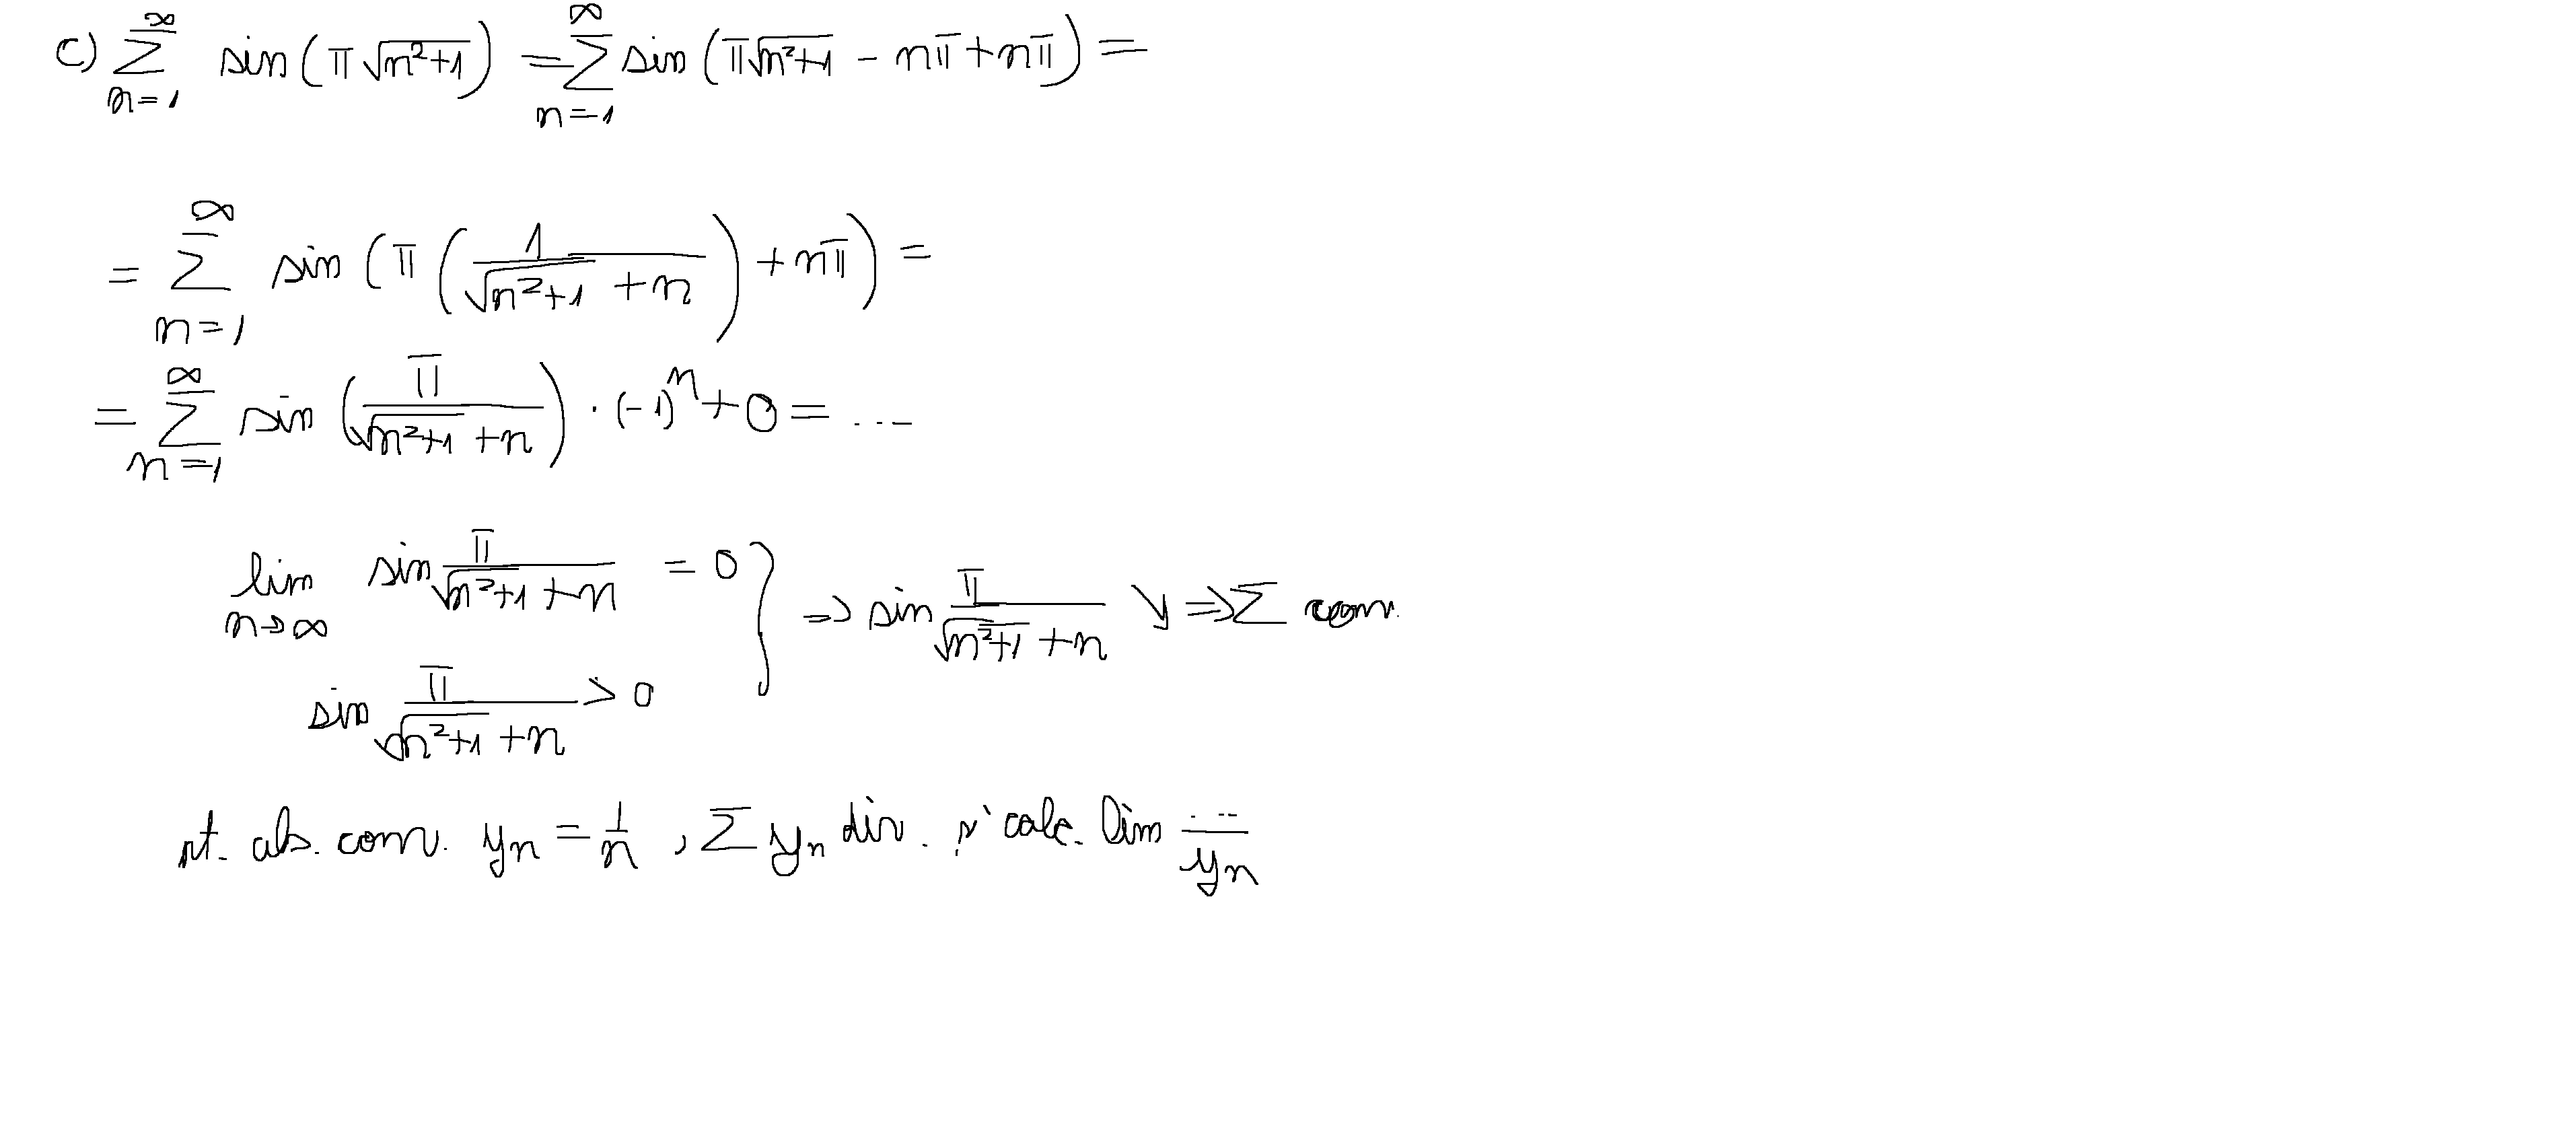 c) ∑_{n=1}^{∞} sin(π√(n²+1)) = ∑_{n=1}^{∞} sin(π√(n²+1) - nπ + nπ) =
= ∑_{n=1}^{∞} sin(π(1/(√(n²+1) + n)) + nπ) =
= ∑_{n=1}^{∞} sin(π/(√(n²+1) + n)) · (-1)^n + 0 = ...
lim_{n→∞} sin π/(√(n²+1) + n) = 0 } ⇒ sin π/(√(n²+1) + n) ↘ ⇒ ∑ conv.
sin π/(√(n²+1) + n) > 0
pt. abs. conv. y_n = 1/n , ∑ y_n div. și calc. lim .../y_n